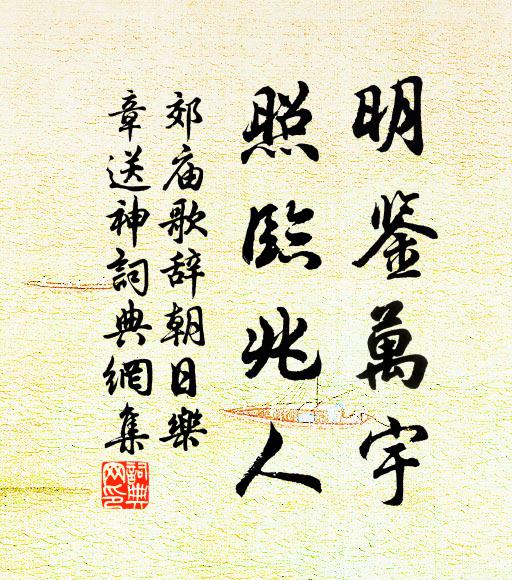 明鉴萬宇
照臨兆人
郊庙歌辞朝日樂
章送神詞典網集
詞典网印